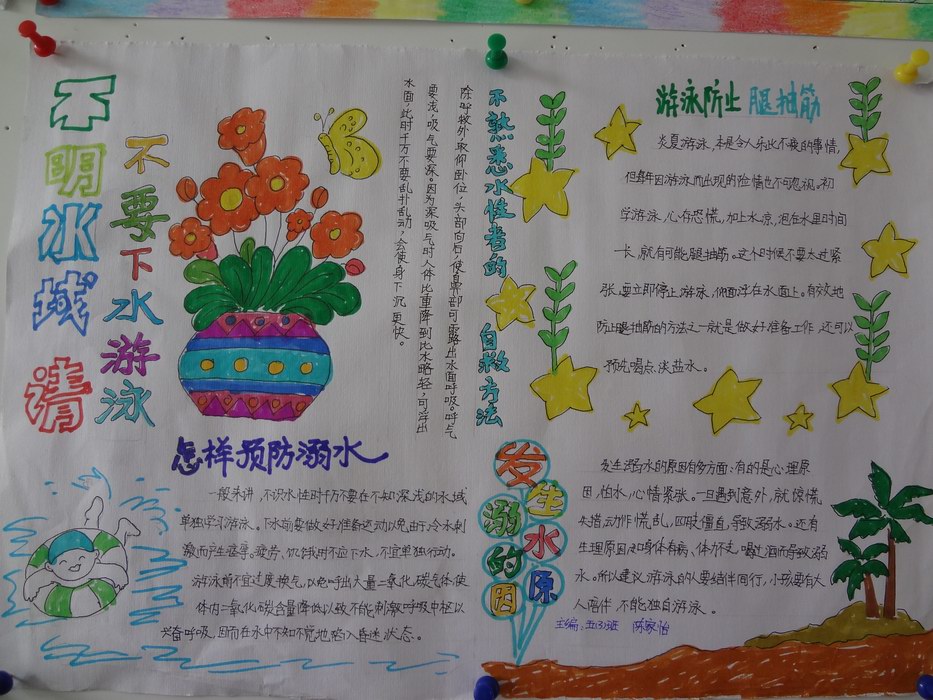 不明水域 请
不要下水游泳
除呼救外,取仰卧位,头部向后,使鼻部可露出水面呼吸。呼气
要浅,吸气要深。因为深吸气时人体比重降到比水略轻,可浮出
水面,此时千万不要乱扑乱动,会使身下沉更快。
不熟悉水性者的 自救方法
游泳防止腿抽筋
炎夏游泳,本是令人乐此不疲的事情,
但每年因游泳而出现的险情也不可忽视。初
学游泳,心存恐慌,加上水凉,泡在水里时间
一长,就有可能腿抽筋。这个时候不要太过紧
张,要立即停止游泳,仰面浮在水面上。有效地
防止腿抽筋的方法之一就是做好准备工作,还可以
预先喝点淡盐水。
怎样预防溺水
一般来讲,不识水性时千万不要在不知深浅的水域
单独学习游泳。下水前要做好准备运动以免由于冷水刺
激而产生痉挛。疲劳、饥饿时不应下水,不宜单独行动。
游泳前不宜过度换气,以免呼出大量二氧化碳气体使
体内二氧化碳含量降低以致不能刺激呼吸中枢以
兴奋呼吸,因而在水中不知不觉地陷入昏迷状态。
发生溺水的原因
发生溺水的原因有多方面:有的是心理原
因,怕水,心情紧张。一旦遇到意外,就惊慌
失措,动作慌乱,四肢僵直,导致溺水。还有
生理原因,如身体有病、体力不支、喝过酒而导致溺
水。所以建议游泳的人要结伴同行,小孩要有大
人陪伴,不能独自游泳。
主编:五3班 陈家怡